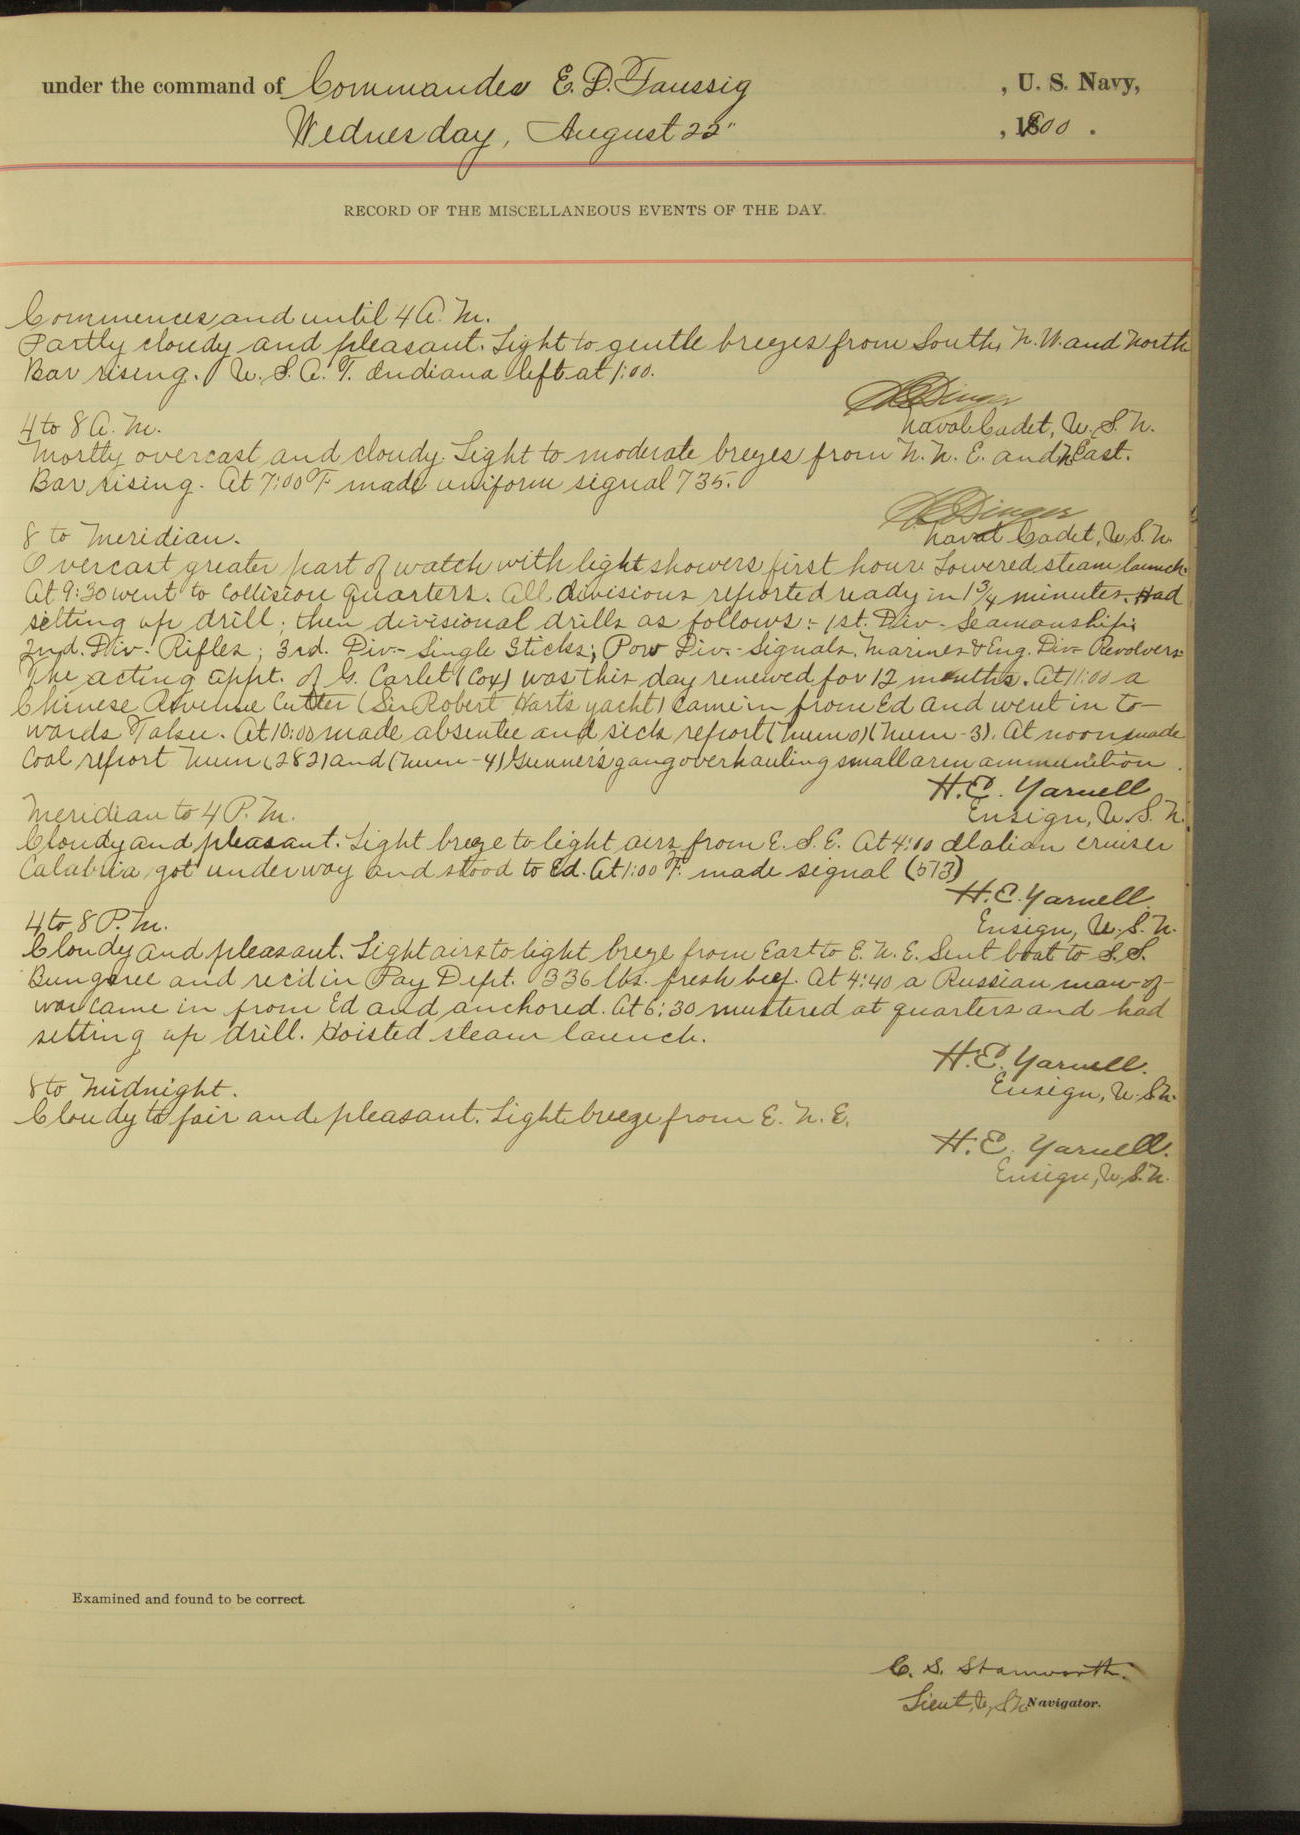 under the command of Commander E. D. Taussig , U. S. Navy,
Wednesday, August 22" , 1900 .
RECORD OF THE MISCELLANEOUS EVENTS OF THE DAY.
Commences and until 4 A. M.
Partly cloudy and pleasant. Light to gentle breezes from South, N. W. and North
Bar rising. U. S. A. T. Indiana left at 1:00.
Naval Cadet, U. S. N.
4 to 8 A. M.
Mostly overcast and cloudy. Light to moderate breezes from N. N. E. and N East.
Bar rising. At 7:00 F made uniform signal 735.
Naval Cadet, U. S. N.
8 to Meridian.
Overcast greater part of watch with light showers first hour. Lowered steam launch.
At 9:30 went to Collision Quarters. All divisions reported ready in 1 3/4 minutes. Had
setting up drill; then divisional drills as follows:- 1st. Div- Seamanship;
2nd. Div- Rifles; 3rd. Div- Single Sticks; Pow Div.- Signals. Marines & Eng. Div- Revolvers
The acting appt. of G. Carlet (Cox) was this day renewed for 12 months. At 11:00 a
Chinese Revenue Cutter (Sir Robert Hart's yacht) came in from Ed and went in to-
wards Taku. At 10:00 made absentee and sick report (Num 0) (Num-3). At noon made
Coal report Num (282) and (Num-4) Gunner's gang overhauling small arm ammunition.
H. E. Yarnell
Ensign, U. S. N.
Meridian to 4 P. M.
Cloudy and pleasant. Light breeze to light airs from E. S. E. At 4:00 Italian cruiser
Calabria got underway and stood to Ed. At 1:00 F. made signal (573)
H. E. Yarnell.
Ensign, U. S. N.
4 to 8 P. M.
Cloudy and pleasant. Light airs to light breeze from East to E. N. E. Sent boat to S. S.
Bungaree and rec'd in Pay Dept. 336 lbs. fresh beef. At 4:40 a Russian man-of-
war came in from Ed and anchored. At 6:30 mustered at quarters and had
setting up drill. Hoisted steam launch.
H. E. Yarnell.
Ensign, U. S. N.
8 to Midnight.
Cloudy to fair and pleasant. Light breeze from E. N. E.
H. E. Yarnell.
Ensign, U. S. N.
Examined and found to be correct.
C. S. Stanworth.
Lieut, U. S. N. Navigator.